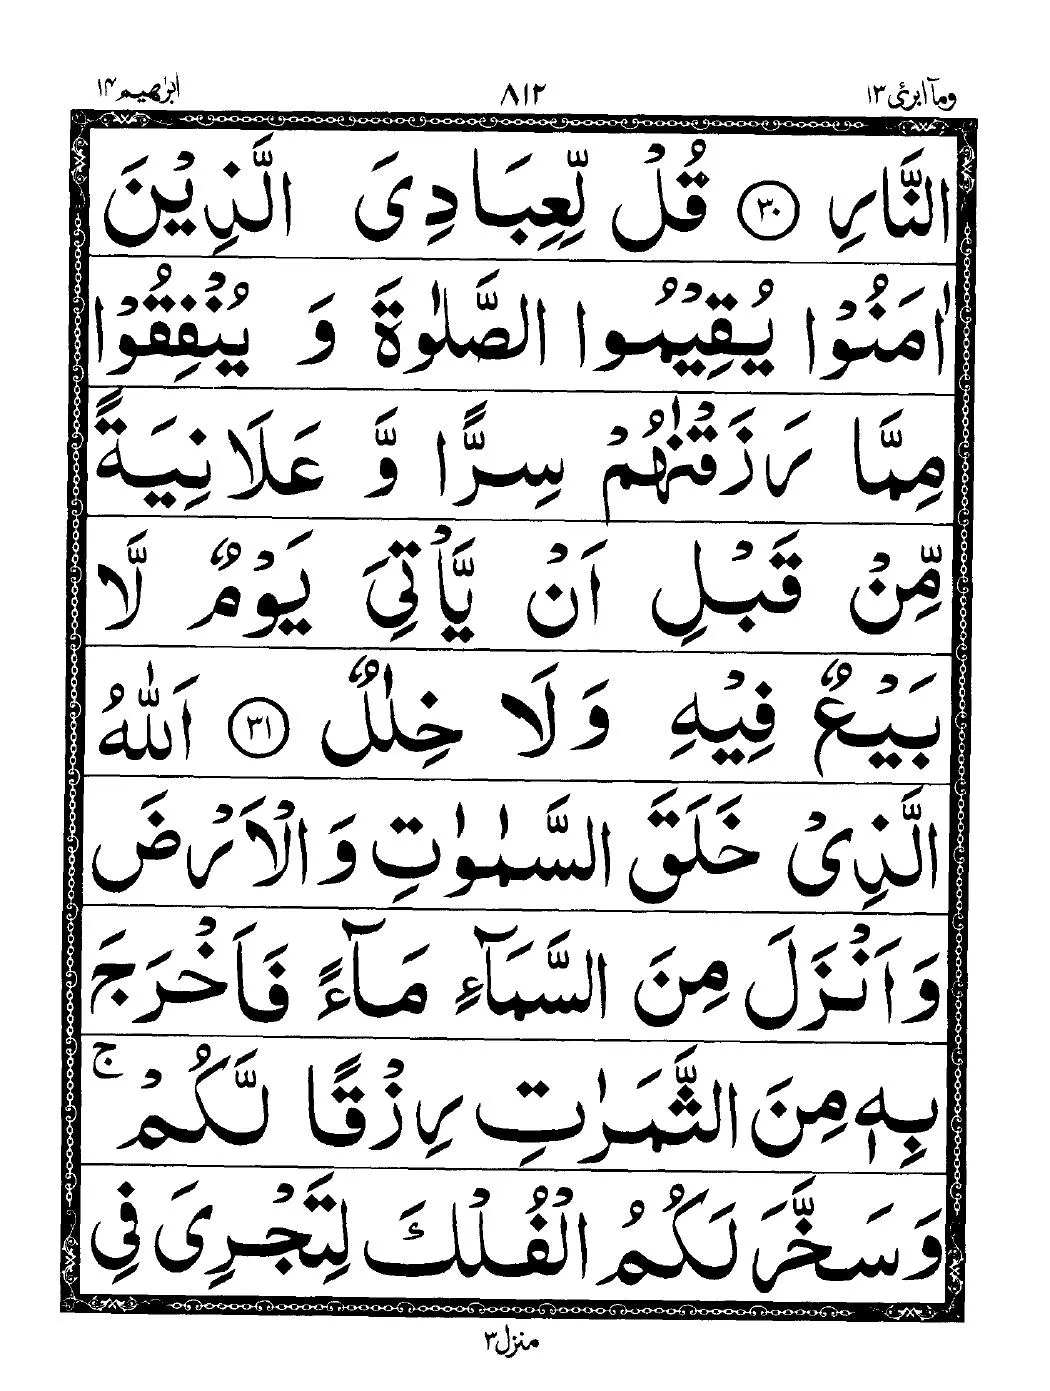 ومآ ابرئ ١٣ ٨١٢ ابرٰهيم ١٤
النَّارِ ٣٠ قُلْ لِّعِبَادِىَ الَّذِيْنَ
اٰمَنُوْا يُقِيْمُوا الصَّلٰوةَ وَ يُنْفِقُوْا
مِمَّا رَزَقْنٰهُمْ سِرًّا وَّ عَلَانِيَةً
مِّنْ قَبْلِ اَنْ يَّاْتِىَ يَوْمٌ لَّا
بَيْعٌ فِيْهِ وَلَا خِلٰلٌ ٣١ اَللّٰهُ
الَّذِىْ خَلَقَ السَّمٰوٰتِ وَالْاَرْضَ
وَاَنْزَلَ مِنَ السَّمَآءِ مَآءً فَاَخْرَجَ
بِهٖ مِنَ الثَّمَرٰتِ رِزْقًا لَّكُمْ ۚ
وَسَخَّرَ لَكُمُ الْفُلْكَ لِتَجْرِىَ فِى
منزل ٣